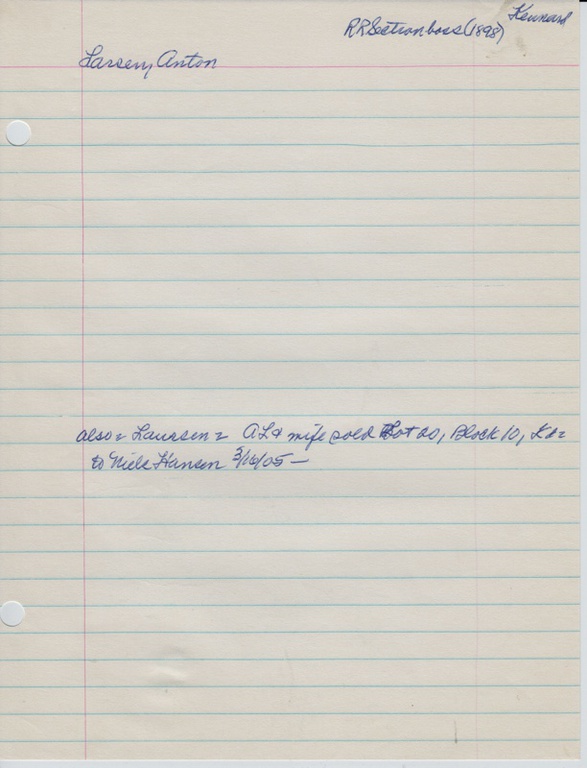 Kennard
RR Section boss (1898)
Larsen, Anton
also = Laursen = AL & wife sold Lot 20, Block 10, K. =
to Niels Hansen 3/16/05 —